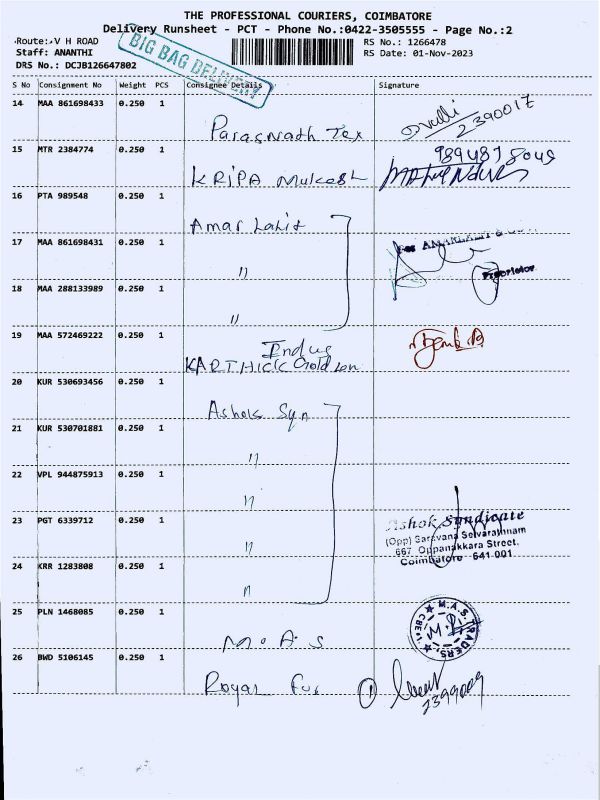 THE PROFESSIONAL COURIERS, COIMBATORE
Delivery Runsheet - PCT - Phone No.:0422-3505555 - Page No.:2
Route: V H ROAD
RS No.: 1266478
Staff: ANANTHI
RS Date: 01-Nov-2023
DRS No.: DCJB126647802
BIG BAG DELIVERY
S No Consignment No Weight PCS Consignee Details Signature
14 MAA 861698433 0.250 1 Parasnath Tex 2390017
15 MTR 2384774 0.250 1 KRIPA Mukesh
16 PTA 989548 0.250 1 Amar Lalit
17 MAA 861698431 0.250 1 " Proprietor
18 MAA 288133989 0.250 1 "
19 MAA 572469222 0.250 1 Indus
KARTHICK Golden
20 KUR 530693456 0.250 1 Ashok Syn
21 KUR 530701881 0.250 1 "
22 VPL 944875913 0.250 1 "
23 PGT 6339712 0.250 1 "
Ashok Syndicate
(Opp) Saravana Selvarathnam
667, Oppanakkara Street,
Coimbatore - 641 001.
24 KRR 1283808 0.250 1 "
25 PLN 1468085 0.250 1 M.A.S
M.A.S. TRADERS, CBE-1
26 BWD 5106145 0.250 1 Royal Fur 1
2399009